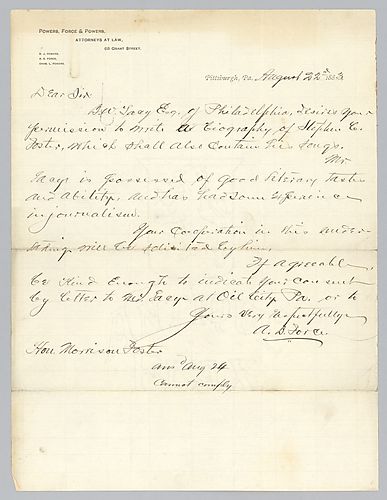 POWERS, FORCE & POWERS,
ATTORNEYS AT LAW,
GRANT STREET.
Pittsburgh, Pa. August 22d 1883
Dear Sir
Esq. of Philadelphia, desires your
permission to write a Biography of Stephen C.
Foster, which shall also contain his songs.
Mr.
is possessed of good literary taste
and ability, and has had some experience
in journalism.
Your cooperation in this under-
taking will be solicited by him.
If agreeable
be kind enough to indicate your consent
by letter to Mr. at Oil City Pa. or to
Yours Very respectfully
A. D. Force
Hon Morrison Foster
ansd Aug 24
Cannot comply